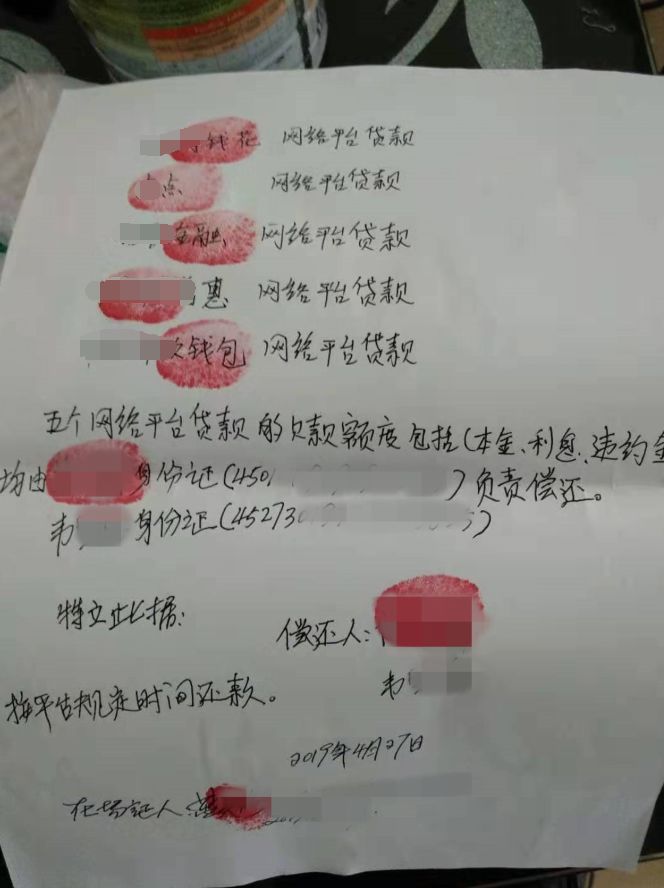 钱花 网络平台贷款
点 网络平台贷款
金融 网络平台贷款
惠 网络平台贷款
钱包 网络平台贷款
五个网络平台贷款的欠款额度包括(本金、利息、违约金
均由 身份证(450 )负责偿还。
韦 身份证(45273 )
特立此据:
偿还人:
韦
按平台规定时间还款。
2019年4月27日
在场证人: